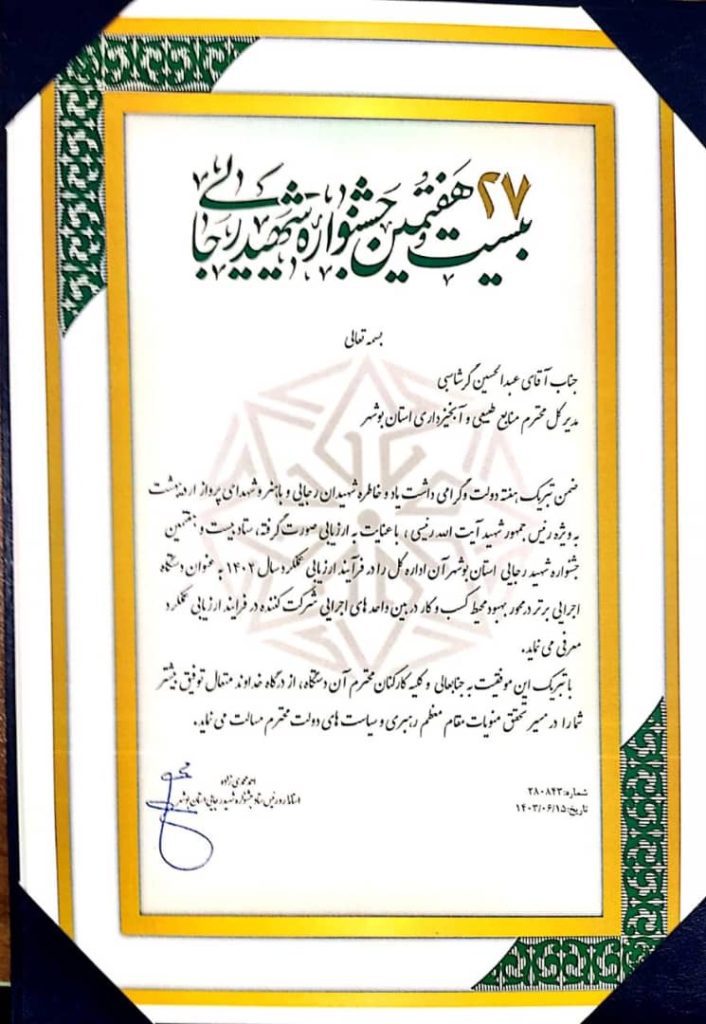 ۲۷
بیست و هفتمین جشنواره شهید رجائی
بسمه تعالی
جناب آقای عبدالحسین گرشاسبی
مدیر کل محترم منابع طبیعی و آبخیزداری استان بوشهر
ضمن تبریک هفته دولت و گرامی داشت یاد و خاطره شهیدان رجایی و باهنر و شهدای پرواز اردیبهشت
به ویژه رئیس جمهور شهید آیت الله رئیسی، با عنایت به ارزیابی صورت گرفته، ستاد بیست و هفتمین
جشنواره شهید رجایی استان بوشهر آن اداره کل را در فرآیند ارزیابی عملکرد سال ۱۴۰۲ به عنوان دستگاه
اجرایی برتر در محور بهبود محیط کسب و کار در بین واحد های اجرایی شرکت کننده در فرایند ارزیابی عملکرد
معرفی می نماید.
با تبریک این موفقیت به جنابعالی و کلیه کارکنان محترم آن دستگاه، از درگاه خداوند متعال توفیق بیشتر
شما را در مسیر تحقق منویات مقام معظم رهبری و سیاست های دولت محترم مسالت می نماید.
احمد محمدی زاده
استاندار و رئیس ستاد جشنواره شهید رجایی استان بوشهر
شماره: ۲۸۰۸۴۳
تاریخ: ۱۴۰۳/۰۶/۱۵